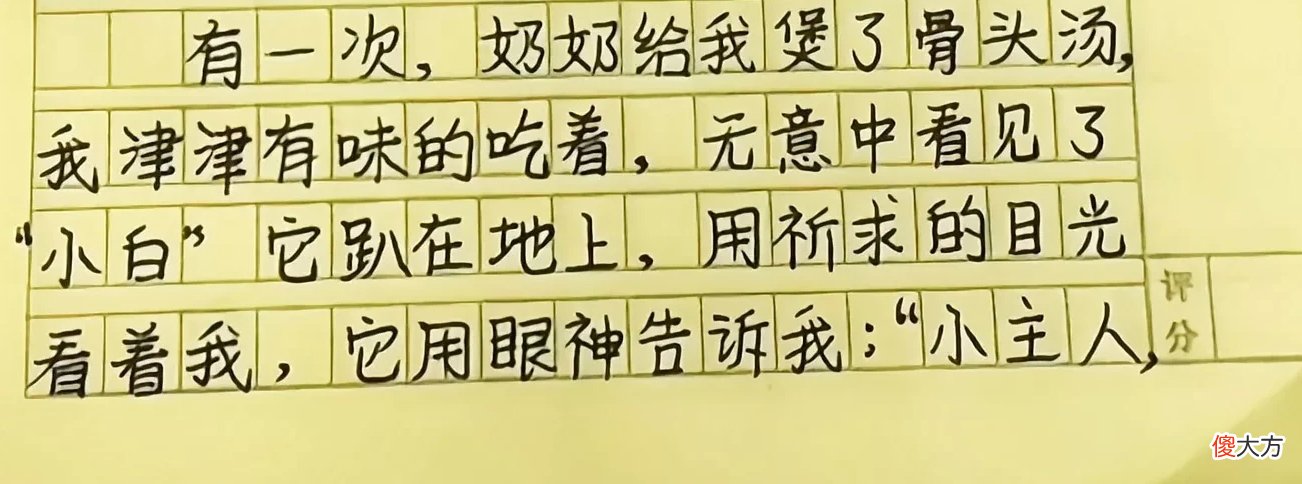 有一次，奶奶给我煲了骨头汤，
我津津有味的吃着，无意中看见了
“小白” 它趴在地上，用祈求的目光
看着我，它用眼神告诉我；“小主人，
评分
傻大方